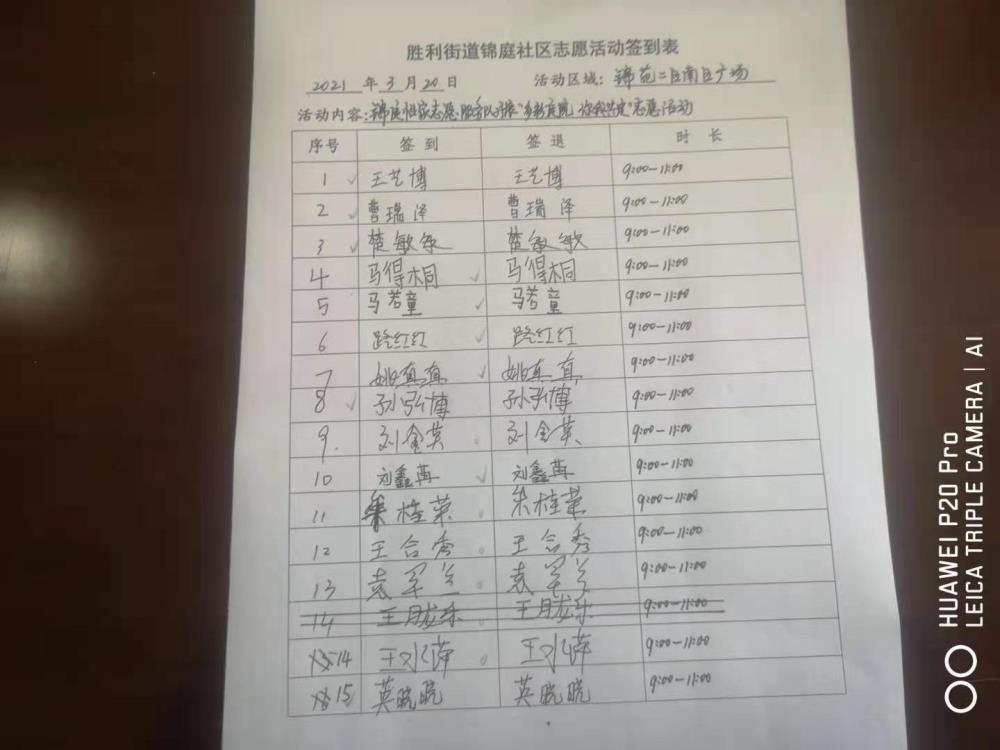 胜利街道锦庭社区志愿活动签到表
2021 年 3 月 20 日 活动区域: 锦苑二区南区广场
活动内容: 锦庭恒家志愿服务队开展"多彩庭院 你我共建"志愿活动
序号 签到 签退 时长
1 王艺博 王艺博 9:00-11:00
2 曹瑞泽 曹瑞泽 9:00-11:00
3 楚敏敏 楚敏敏 9:00-11:00
4 马得桐 马得桐 9:00-11:00
5 马若童 马若童 9:00-11:00
6 路红红 路红红 9:00-11:00
7 姚真真 姚真真 9:00-11:00
8 孙弘博 孙弘博 9:00-11:00
9. 刘金英 刘金英 9:00-11:00
10 刘鑫苒 刘鑫苒 9:00-11:00
11 朱桂荣 朱桂荣 9:00-11:00
12 王合秀 王合秀 9:00-11:00
13 袁军兰 袁军兰 9:00-11:00
14 王胧乐 王胧乐 9:00-11:00
14 王水萍 王水萍 9:00-11:00
15 英晓晓 英晓晓 9:00-11:00
HUAWEI P20 Pro
LEICA TRIPLE CAMERA | AI